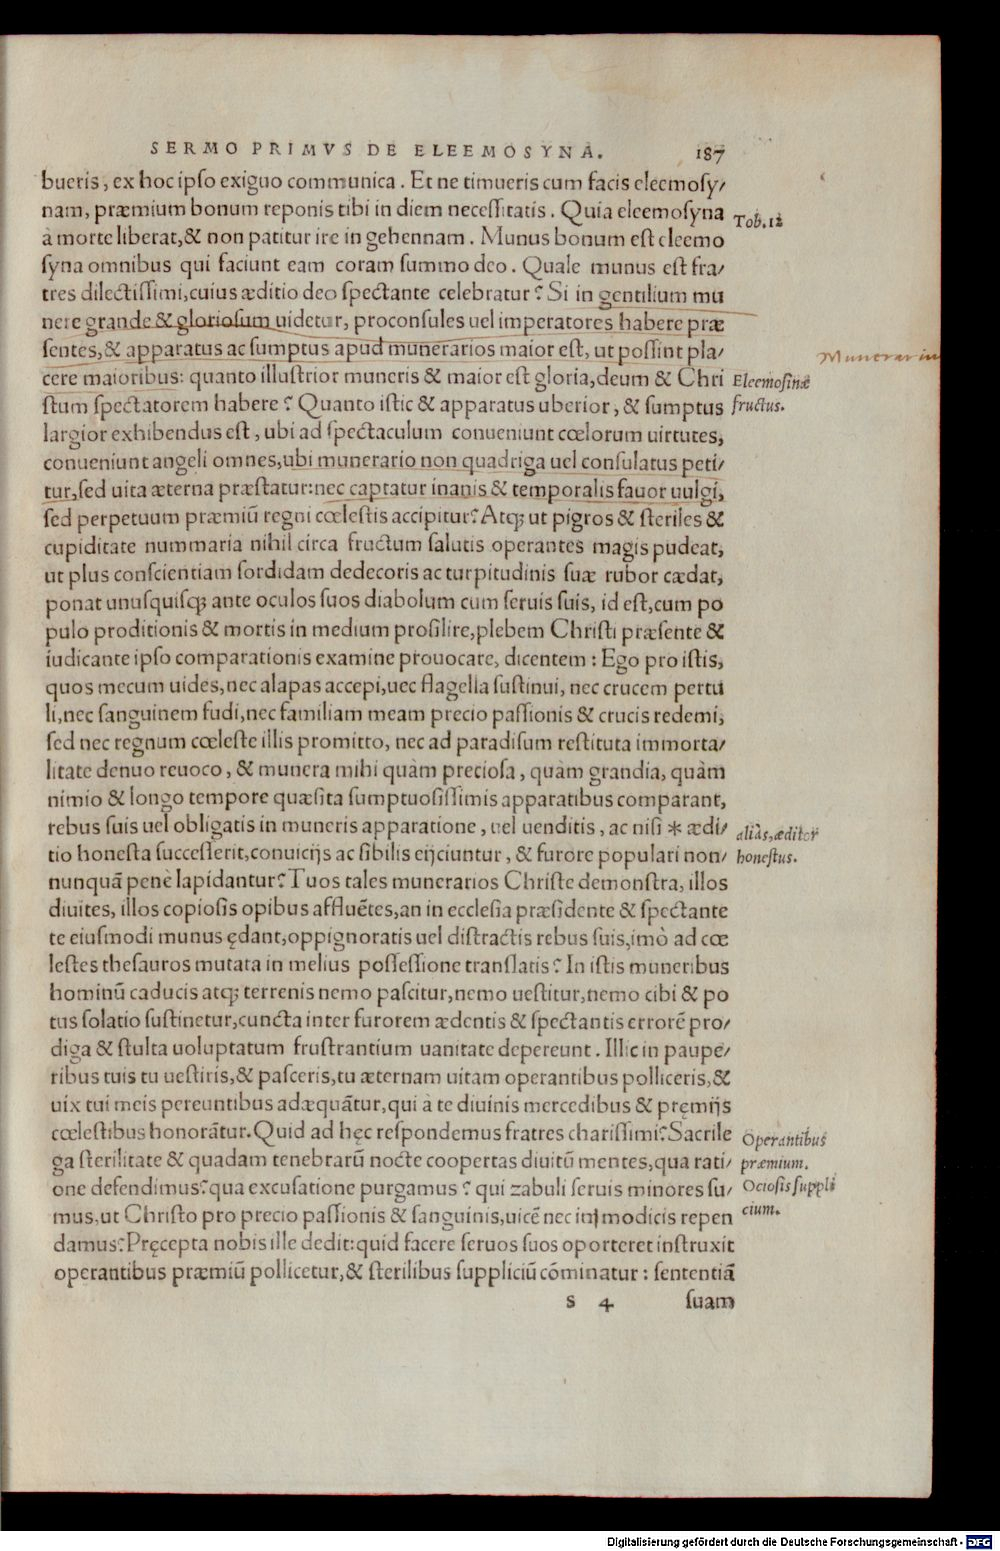 SERMO PRIMVS DE ELEEMOSYNA. 187
bueris, ex hoc ipso exiguo communica. Et ne timueris cum facis eleemosy/
nam, præmium bonum reponis tibi in diem necessitatis. Quia eleemosyna
à morte liberat, & non patitur ire in gehennam. Munus bonum est eleemo
syna omnibus qui faciunt eam coram summo deo. Quale munus est fra/
tres dilectissimi, cuius æditio deo spectante celebratur? Si in gentilium mu
nere grande & gloriosum uidetur, proconsules uel imperatores habere præ
sentes, & apparatus ac sumptus apud munerarios maior est, ut possint pla/
cere maioribus: quanto illustrior muneris & maior est gloria, deum & Chri
stum spectatorem habere? Quanto istic & apparatus uberior, & sumptus
largior exhibendus est, ubi ad spectaculum conueniunt cœlorum uirtutes,
conueniunt angeli omnes, ubi munerario non quadriga uel consulatus peti/
tur, sed uita æterna præstatur: nec captatur inanis & temporalis fauor uulgi,
sed perpetuum præmiũ regni cœlestis accipitur? Atqꝫ ut pigros & steriles &
cupiditate nummaria nihil circa fructum salutis operantes magis pudeat,
ut plus conscientiam sordidam dedecoris ac turpitudinis suæ rubor cædat,
ponat unusquisqꝫ ante oculos suos diabolum cum seruis suis, id est, cum po
pulo proditionis & mortis in medium prosilire, plebem Christi præsente &
iudicante ipso comparationis examine prouocare, dicentem: Ego pro istis,
quos mecum uides, nec alapas accepi, uec flagella sustinui, nec crucem pertu
li, nec sanguinem fudi, nec familiam meam precio passionis & crucis redemi,
sed nec regnum cœleste illis promitto, nec ad paradisum restituta immorta/
litate denuo reuoco, & munera mihi quàm preciosa, quàm grandia, quàm
nimio & longo tempore quæsita sumptuosissimis apparatibus comparant,
rebus suis uel obligatis in muneris apparatione, uel uenditis, ac nisi * ædi/
tio honesta successerit, conuicijs ac sibilis eijciuntur, & furore populari non/
nunquã penè lapidantur? Tuos tales munerarios Christe demonstra, illos
diuites, illos copiosis opibus affluẽtes, an in ecclesia præsidente & spectante
te eiusmodi munus ędant, oppignoratis uel distractis rebus suis, imò ad cœ
lestes thesauros mutata in melius possessione translatis? In istis muneribus
hominũ caducis atqꝫ terrenis nemo pascitur, nemo uestitur, nemo cibi & po
tus solatio sustinetur, cuncta inter furorem ædentis & spectantis errorẽ pro/
diga & stulta uoluptatum frustrantium uanitate depereunt. Illic in paupe/
ribus tuis tu uestiris, & pasceris, tu æternam uitam operantibus polliceris, &
uix tui meis pereuntibus adæquãtur, qui à te diuinis mercedibus & pręmijs
cœlestibus honorãtur. Quid ad hęc respondemus fratres charissimi? Sacrile
ga sterilitate & quadam tenebrarũ nocte coopertas diuitũ mentes, qua rati/
one defendimus? qua excusatione purgamus? qui zabuli seruis minores su/
mus, ut Christo pro precio passionis & sanguinis, uicẽ nec in modicis repen
damus? Pręcepta nobis ille dedit: quid facere seruos suos oporteret instruxit
operantibus præmiũ pollicetur, & sterilibus suppliciũ cõminatur: sententiã
s 4 suam
Tob. 12
Munerarius
Eleemosinæ
fructus.
aliàs, æditor
honestus.
Operantibus
præmium.
Ociosis suppli
cium.
Digitalisierung gefördert durch die Deutsche Forschungsgemeinschaft - DFG